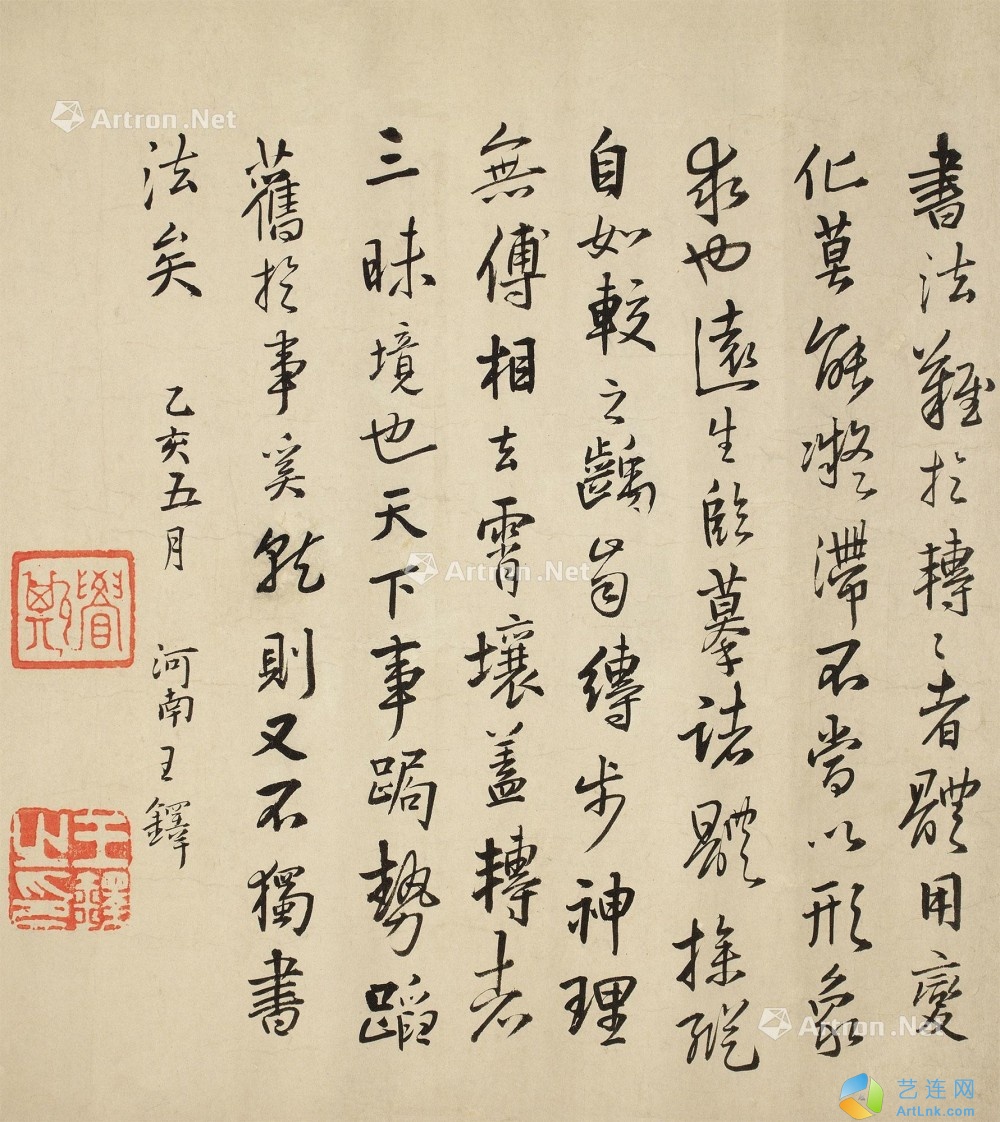 書法難於轉〻者體用變
化莫能凝滯不當以形象
求也遠生臨摹諸體操縱
自如較之齲齒縛步神理
無傅相去霄壤蓋轉者
三昧境也天下事跼勢蹈
舊於事奚乾則又不獨書
法矣
乙亥五月
河南王鐸
王鐸之印
Artron.Net
Artron.Net
Artron.Net
艺连网
ArtLnk.com